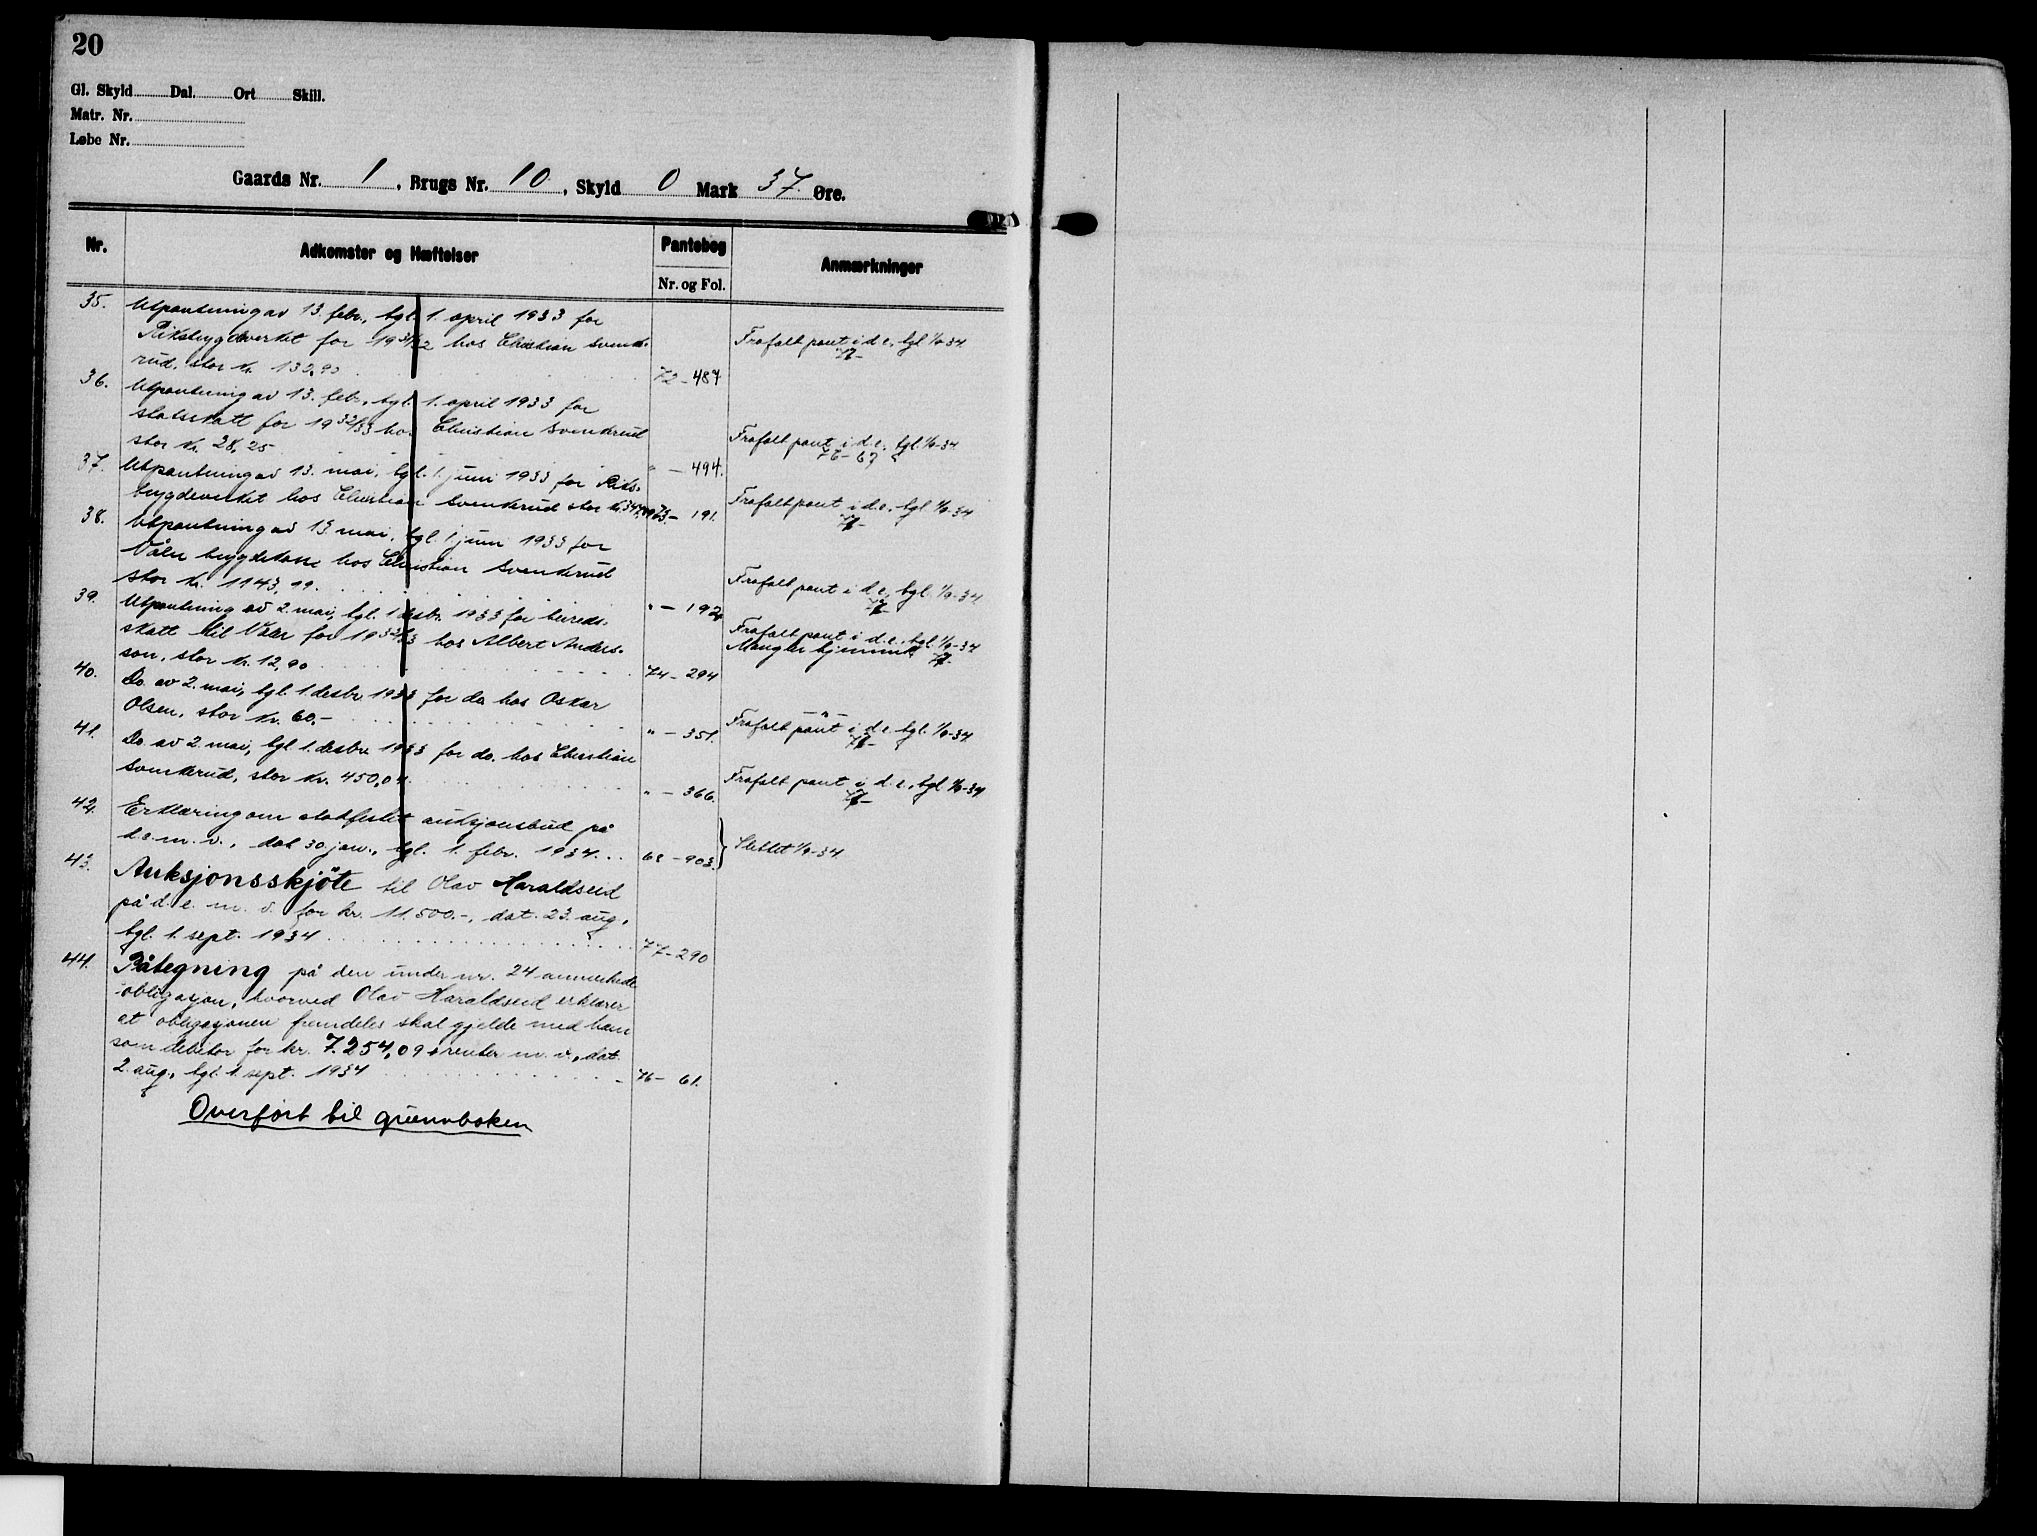 20
Gl. Skyld Dal. Ort Skill.
Matr. Nr.
Løbe Nr.
Gaards Nr. 1, Brugs Nr. 10, Skyld 0 Mark 37 Øre.
Nr. Adkomster og Hæftelser Pantebog Anmærkninger
Nr. og Fol.
35. Utpantning av 13. febr., tgl. 1. april 1933 for
Riksbygdeverket for 1931/32 hos Christian Svenke-
rud, stor kr. 72 - 487
Frafalt pant i d.e. tgl. 1/9-34
36. Utpantning av 13. febr., tgl. 1. april 1933 for
statsskatt for 1932/33 hos Christian Svenkerud
stor kr. 28,25 " - 494.
Frafalt pant i d.e. tgl. 1/9-34
76-67
37. Utpantning av 13. mai, tgl. 1. juni 1933 for Riks-
bygdeverket hos Christian Svenkerud stor kr. 73 - 191.
Frafalt pant i d.e. tgl. 1/9-34
38. Utpantning av 13. mai, tgl. 1. juni 1933 for
Våler bygdekasse hos Christian Svenkerud
stor kr. 1143,19. " - 192
Frafalt pant i d.e. tgl. 1/9-34
39. Utpantning av 2. mai, tgl. 1. desbr. 1933 for
skatt til Våler for 1932/33 hos Albert Anders-
son, stor kr. 12,90 74 - 294
Frafalt pant i d.e. tgl. 1/9-34
Mangler hjemmel
40. Do. av 2. mai, tgl. 1. desbr. 1933 for do. hos Oskar
Olsen, stor kr. 60.- " - 351.
-"-
Frafalt pant i d.e. tgl. 1/9-34
41. Do. av 2. mai, tgl. 1. desbr. 1933 for do. hos Christian
Svenkerud, stor kr. 450,04. " - 366.
Frafalt pant i d.e. tgl. 1/9-34
42. Erklæring om stadfestet auksjonsbud på
d.e. m. v., dat 30. jan., tgl. 1. febr. 1934... 68 - 903.
Slettet 1/9-34.
43. Auksjonsskjöte til Olav Haraldseid
på d. e. m. v. for kr. 11.500.-, dat. 23. aug.,
tgl. 1. sept. 1934 77-290
44. Påtegning på den under nr. 24 anmerkede
obligasjon, hvorved Olav Haraldseid erklærer
at obligasjonen fremdeles skal gjelde med ham
som debitor for kr. 7.254,09 + renter m. v., dat.
2. aug., tgl. 1. sept. 1934 76 - 61.
Overført til grunnboken